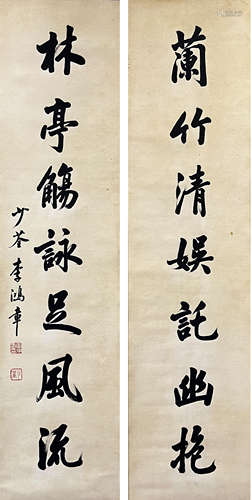 蘭竹清娛託幽抱
林亭觴詠足風流
少荃李鴻章